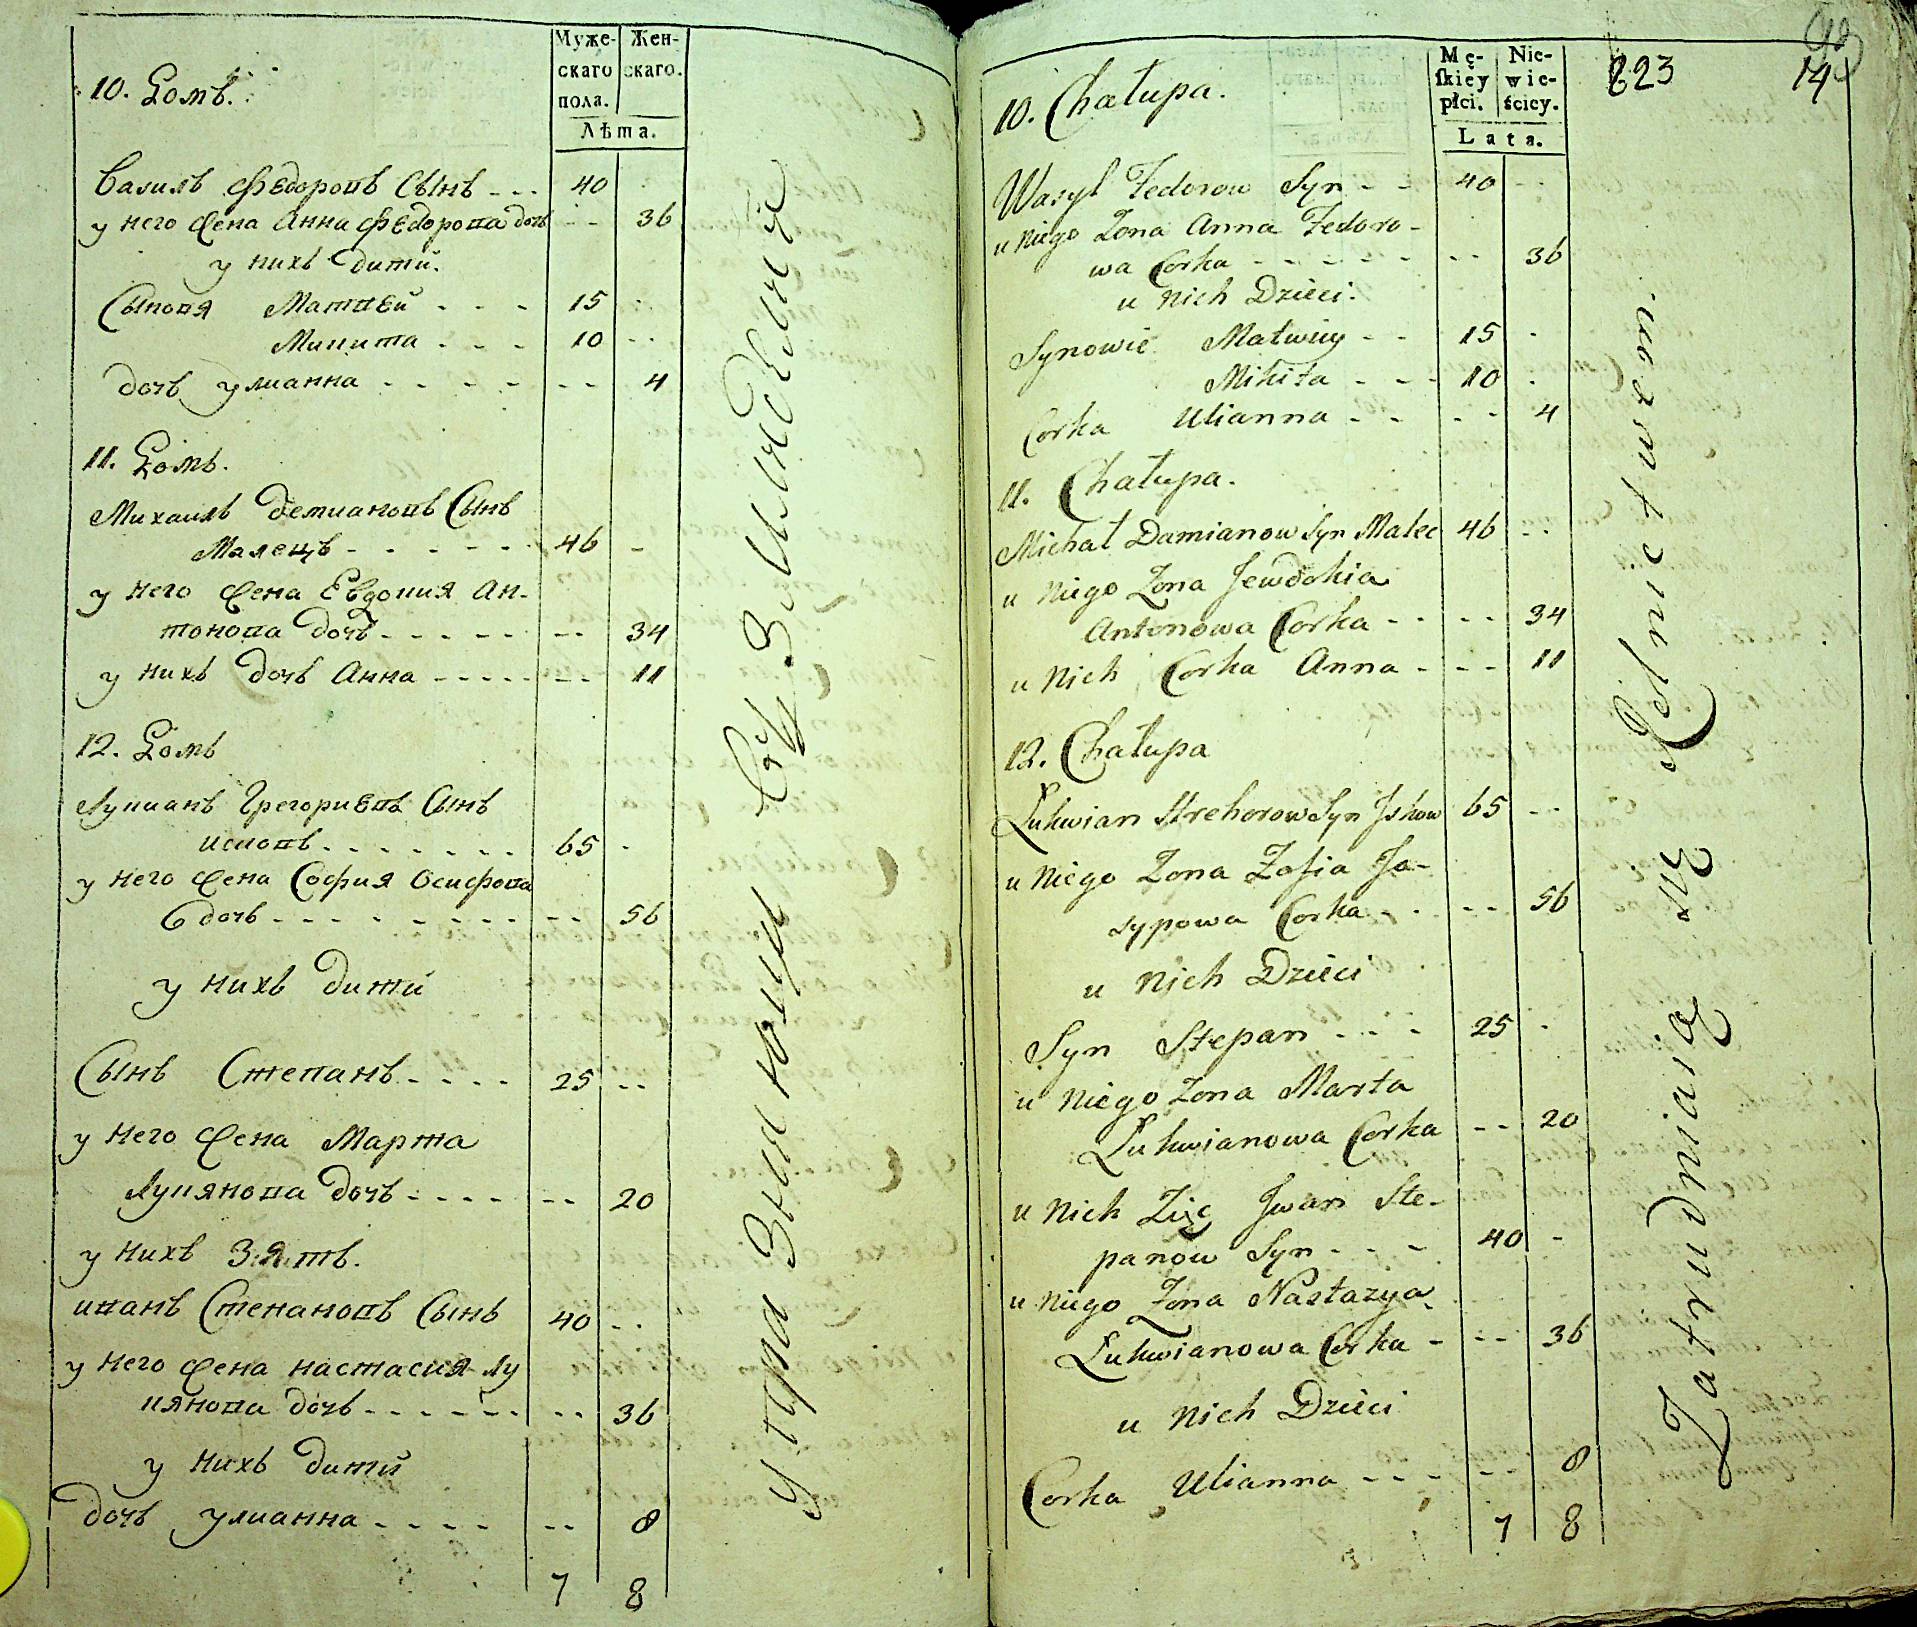 Муже- Жен-
скаго скаго.
пола.
Лѣта.
10. Домъ.
Василь Федоровъ Сынъ - - - 40
у него Жена Анна Федорова дочь - - 36
у нихъ дити.
Сыновя Матвей - - - 15
Микита - - - 10 - -
дочь улианна - - - - - - - 4
11. Домъ.
Михаилъ Демиановъ Сынъ
Малецъ - - - - - - 46 -
у него Жена Евдокия Ан-
тонова дочь - - - - - - - 34
у нихъ дочь Анна - - - - - - - 11
12. Домъ
Лукианъ Грегориевъ Сынъ
исковъ - - - - - - - 65 -
у него Жена София Осифова
дочь - - - - - - - - - - 56
у нихъ дити
Сынъ Степанъ - - - - 25 - -
у него Жена Марта
Лукянова дочь - - - - - - 20
у нихъ Зять.
иванъ Степановъ Сынъ 40 - -
у него Жена настасия Лу
кянова дочь - - - - - - - - 36
у нихъ дити
дочь улианна - - - - - - 8
7 8
упражняющи Ѡся Земледелие
223 14
Mę- Nie-
ſkiey wie-
płci. ścicy.
Lata.
10. Chałupa.
Wasyl Fedorow Syn - - 40 - -
u Niego Zona Anna Fedoro-
wa Corka - - - - - - - - 36
u Nich Dzieci.
Synowie Matwiey - - 15 -
Mikita - - - 10 -
Corka Ulianna - - - - 4
11. Chałupa.
Michał Damianow Syn Malec 46 - -
u Niego Zona Jewdokia
Antonowa Corka - - - - 34
u Nich Corka Anna - - - 11
12. Chałupa
Lukwian Hrehorow Syn Jskow 65 - -
u Niego Zona Zofia Jo-
sypowa Corka - - - - 56
u Nich Dzieci
Syn Stepan - - - 25 -
u Niego Zona Marta
Lukwianowa Corka - - 20
u Nich Zięc Jwan Ste-
panow Syn - - - 40 -
u Niego Zona Nastazya
Lukwianowa Corka - - - 36
u Nich Dzieci
Corka Ulianna - - - - - - 8
7 8
Zatrudniaią się Rolnictwem.